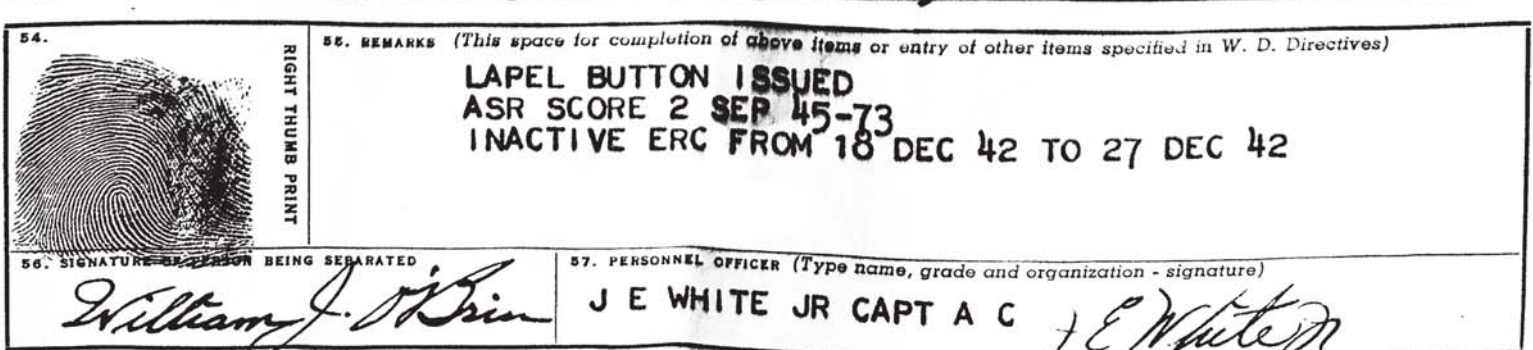 54.
RIGHT THUMB PRINT
55. REMARKS (This space for completion of above items or entry of other items specified in W. D. Directives)
LAPEL BUTTON ISSUED
ASR SCORE 2 SEP 45-73
INACTIVE ERC FROM 18 DEC 42 TO 27 DEC 42
56. SIGNATURE OF PERSON BEING SEPARATED
William J. O'Brien
57. PERSONNEL OFFICER (Type name, grade and organization - signature)
J E WHITE JR CAPT A C
J E White Jr